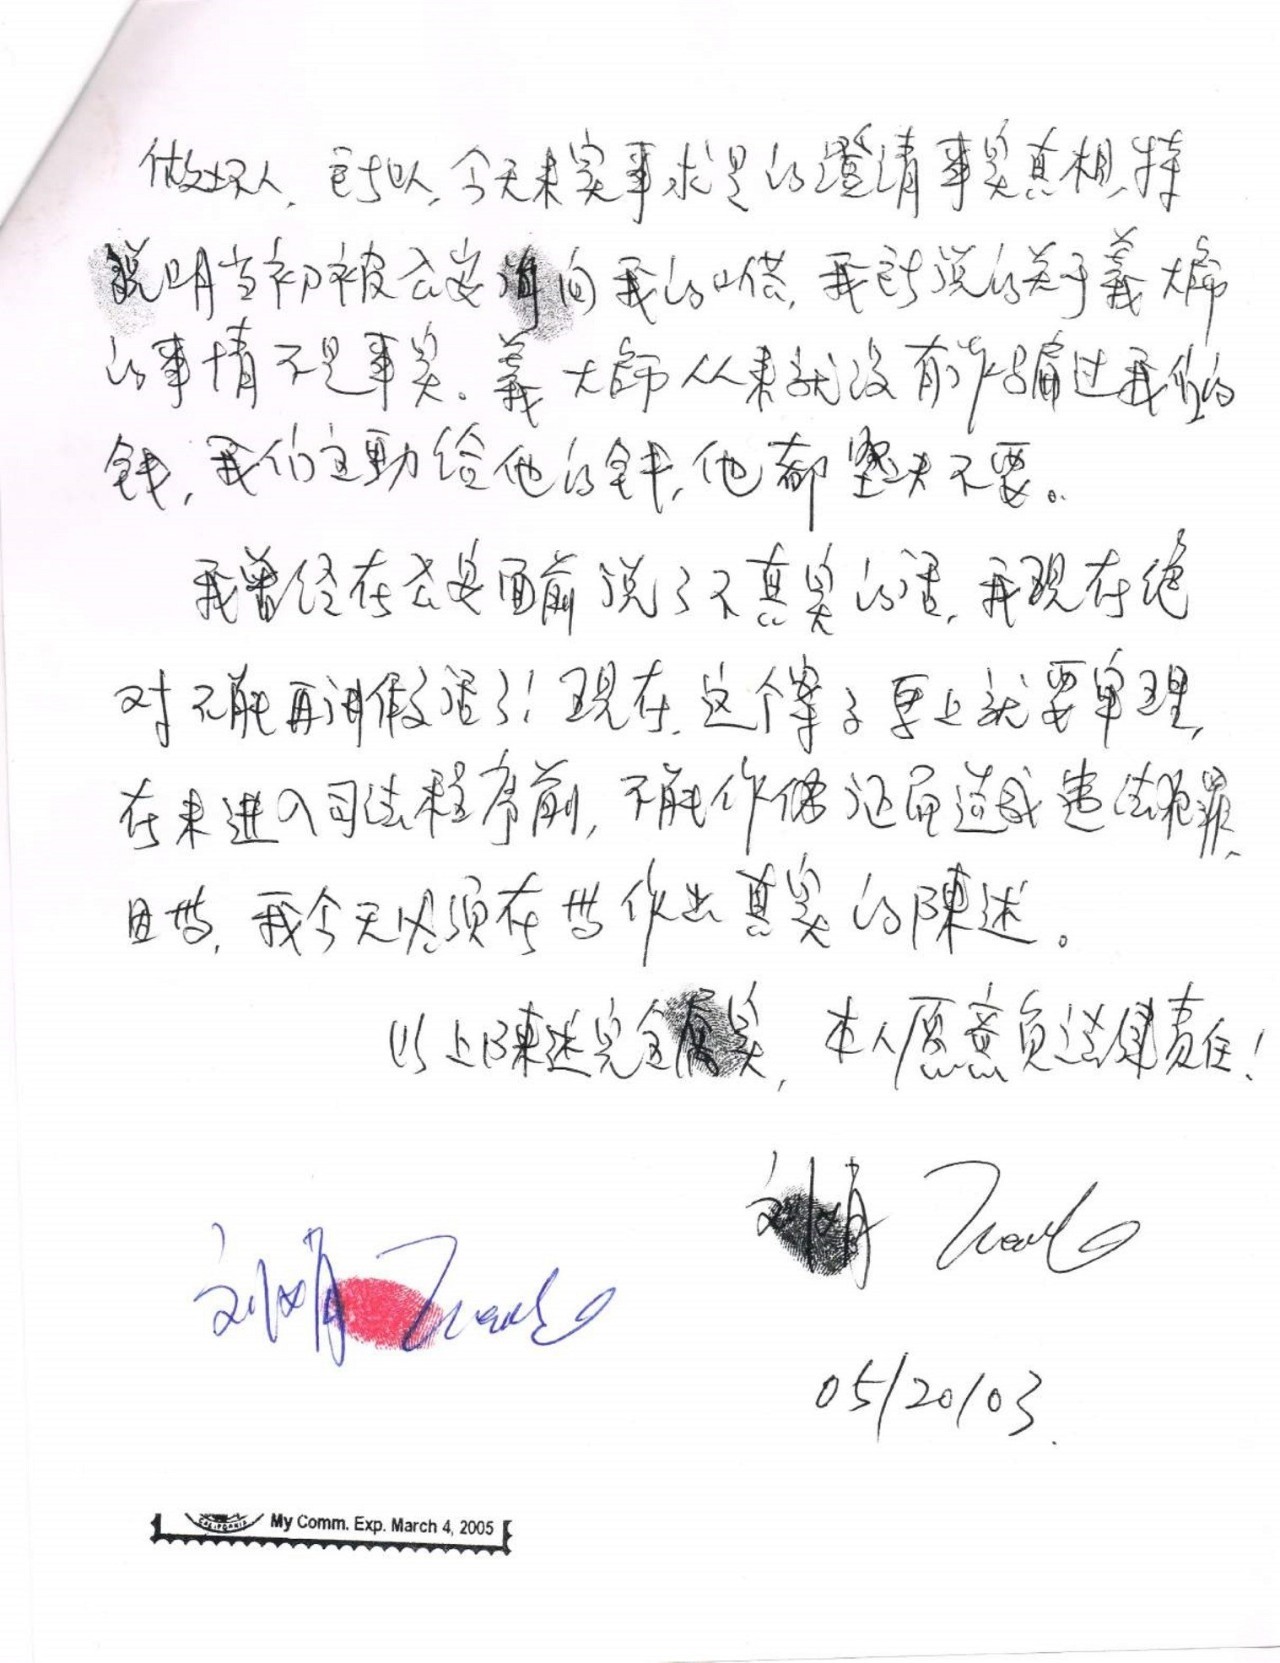 做坏人，所以，今天来实事求是的澄清事实真相，特
说明当初被公安询问我的口供，我所说的关于義大师
的事情不是事实。義大师从来就没有诈骗过我们的
钱，我们主動给他的钱，他都坚决不要。
我曾经在公安面前说了不真实的话，我现在绝
对不能再讲假话了！现在，这个案子马上就要审理，
在未进入司法程序前，不能作伪证而造成违法犯罪，
因此，我今天必须在此作出真实的陳述。
以上陳述完全属实，本人愿意负法律责任！
刘娟
刘娟
05/20/03.
CALIFORNIA
My Comm. Exp. March 4, 2005